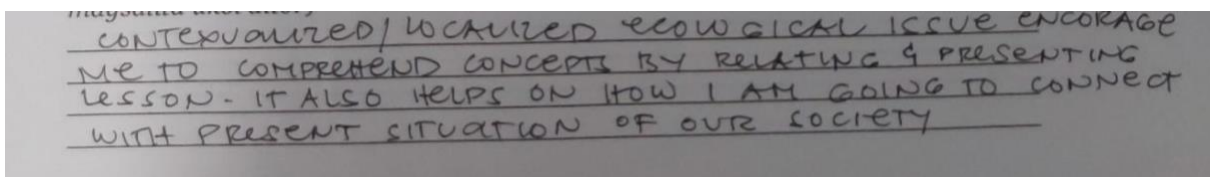 CONTEXUALIZED/LOCALIZED ECOLOGICAL ISSUE ENCORAGE
ME TO COMPREHEND CONCEPTS BY RELATING & PRESENTING
LESSON. IT ALSO HELPS ON HOW I AM GOING TO CONNECT
WITH PRESENT SITUATION OF OUR SOCIETY